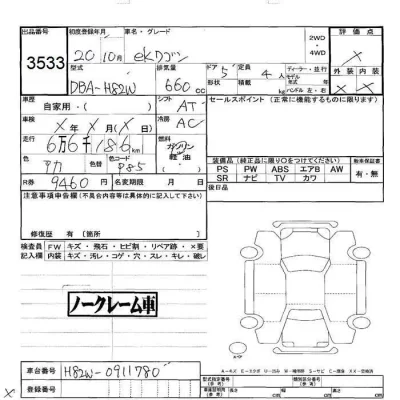 出品番号 初度登録年月 車名・グレード 評価点
3533 20年10月 ekワゴン 2WD ・ 4WD ×
型式 排気量 ドア 形状 定員 外装 内装
DBA-H82W 660cc 5 4人 ディーラー・並行 × ×
モデル年式 kg ハンドル 左・右
車歴 自家用・( ) シフト AT セールスポイント (正常に機能するものに限ります)
車検 ×年×月(×)日 冷房 AC
走行 6万6千186km 燃料 ガソリン 軽油
色 アカ 色替 色コード P85 装備品(純正品に限りVOをつけてください) 新車保証書
PS PW ABS エアB AW 有・無
SR ナビ TV カワ
R券 9460円 名変期限 月 日 後日品
注意事項申告欄(不具合等は具体的に記入して下さい)
修復歴 有( 箇所)・無
検査員 FW キズ・飛石・ヒビ割・リペア跡・×要
記入欄 内装 キズ・汚レ・コゲ・穴・スレ・キレ・破レ
ノークレーム車
車台番号 H82W-0911780
登録番号 型式指定番号(参考) 類別区分番号(参考)